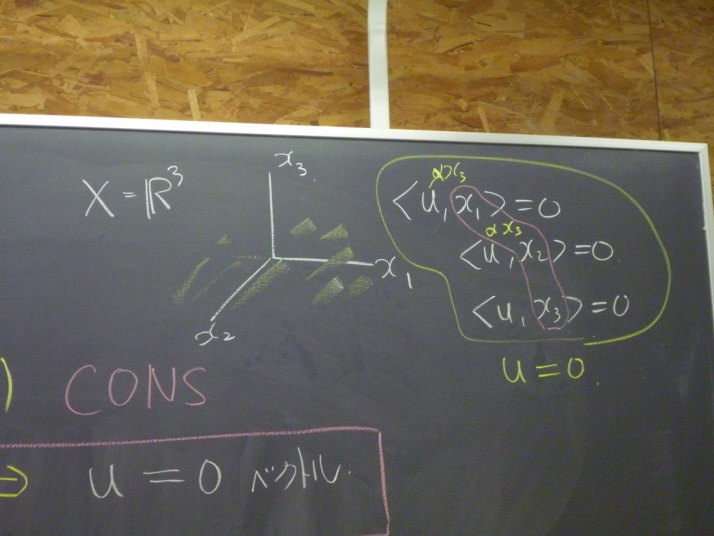 X = ℝ³
x₃
x₁
x₂
αx₃
<u, x₁> = 0
αx₃
<u, x₂> = 0
<u, x₃> = 0
u = 0.
) CONS
⇒ u = 0 ベクトル.